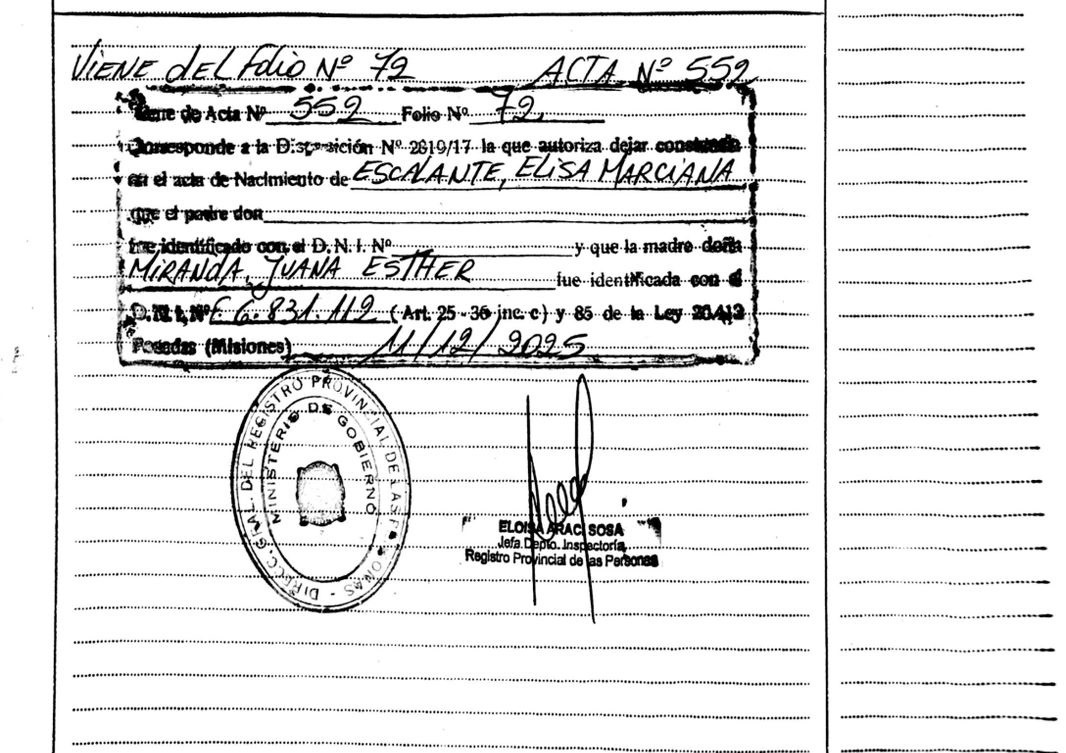 VIENE DEL Folio Nº 72 ACTA Nº 559
Viene de Acta Nº 559 Folio Nº 72
Corresponde a la Disposición Nº 2819/17 la que autoriza dejar constancia
en el acta de Nacimiento de ESCALANTE, ELISA MARCIANA
que el padre don
fue identificado con el D. N. I. Nº y que la madre doña
MIRANDA, JUANA ESTHER fue identificada con el
D. N. I, Nº F 6.831.112 (Art. 25 - 36 inc. c) y 85 de la Ley 26.413
Posadas (Misiones) 11/12/2025
DIRECC. GRAL. DEL REGISTRO PROVINCIAL DE LAS PERSONAS
MINISTERIO DE GOBIERNO
ELOISA ARACI SOSA
Jefa Depto. Inspectoría
Registro Provincial de las Personas